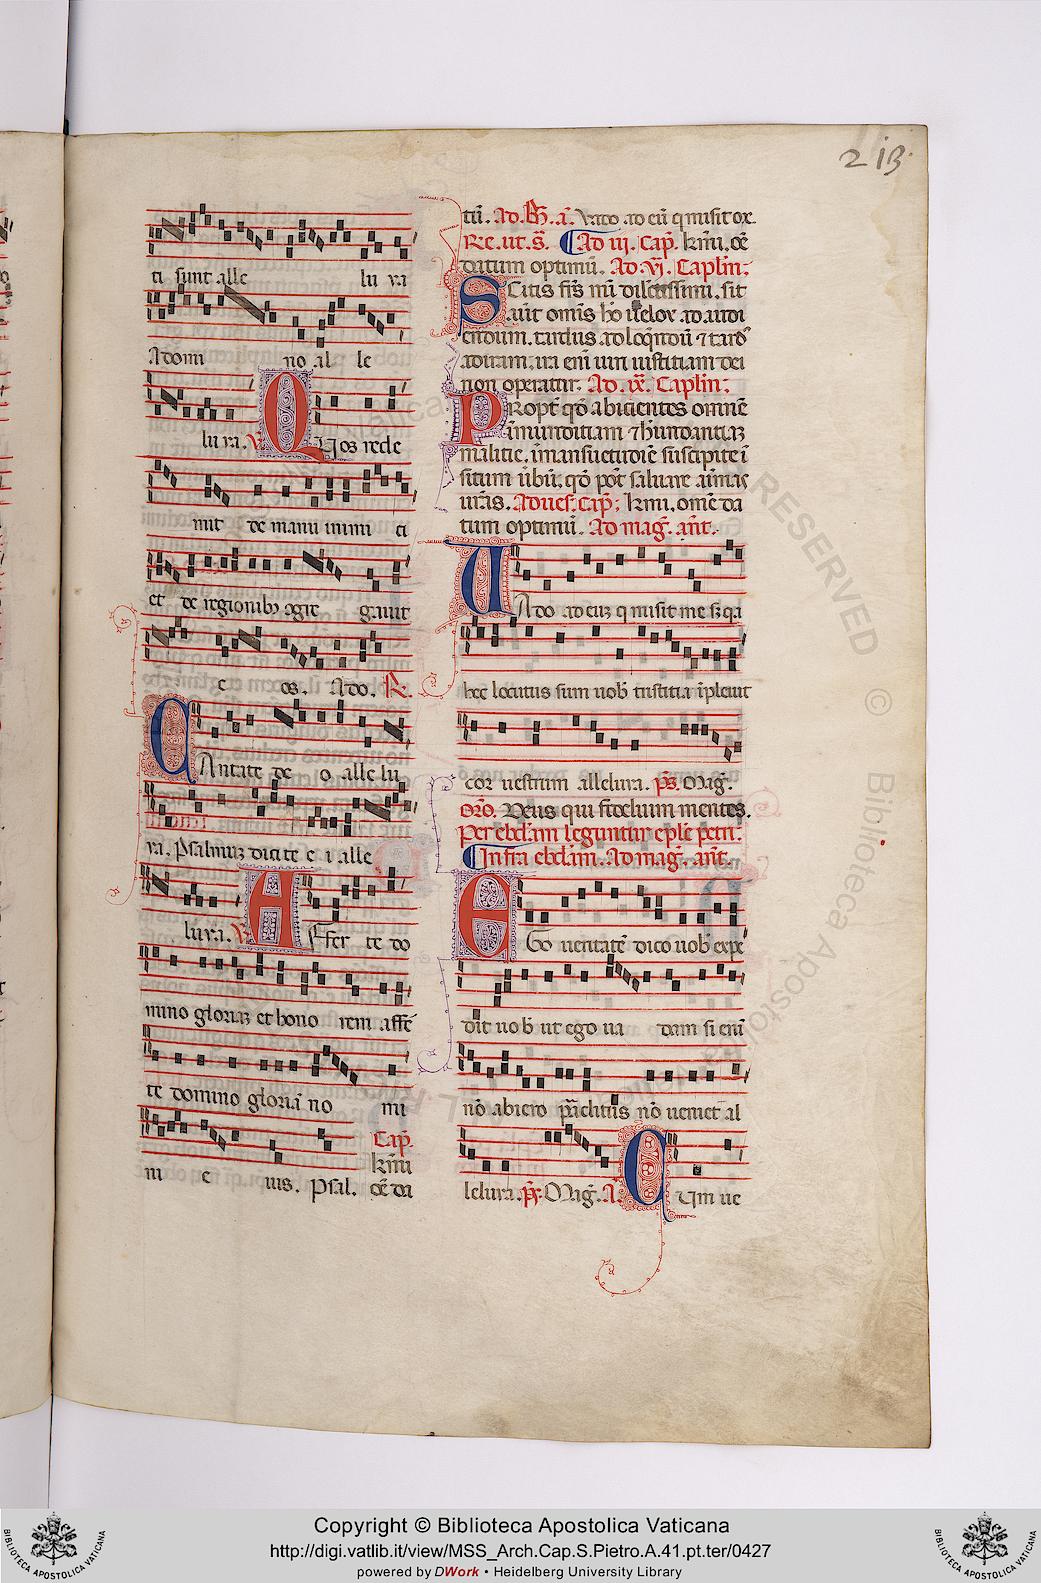 213.
ti sunt alle lu ya
A domi no al le
lu ya. V Quos rede
mit de manu inimi ci
et de regionib9 9gre gauit
e os. A do. R.
Cantate de o alle lu
ya. Psalmuz dicite e i alle
lu ya. V Affer te do
mino gloriaz et hono rem affe
te domino gloria no mi
Cap.
krmi
ni e ius. Psal. oe da
tu. Ad. B. a. Vado ad eu q misit ox.
Re. ut. s. Ad iii. Cap. krmi, oe
datum optimu. Ad. vi. Caplm;
Scitis frs mi dilectissimi. sit
aut omis ho uelox ad audi
endum. tardus ad loqndu 7 tard9
ad iram, ira eni uiri iustitiam dei
non operatur. Ad. ix. Caplm;
Propt qd abicientes omne
inmunditiam 7 hundantiaz
malitie. i mansuetudie suscipite i
situm ubu, qd pot saluare aimas
uras. Ad ues. Cap; krmi, ome da
tum optimu. Ad mag. ant.
Vado ad euz q misit me s3 qa
hec locutus sum uob tristitia ipleuit
cor uestrum alleluya. ps. Mag.
Oro. Deus qui fidelium mentes.
Per ebdam leguntur eple petri.
Infra ebdam. Ad mag. ant.
Ego ueritate dico uob expe
dit uob ut ego ua dam si eni
no abiero paclitus no ueniet al
leluya. ps. Mag. A. Cum ue
RESERVED © Biblioteca Apostolica
Copyright © Biblioteca Apostolica Vaticana
http://digi.vatlib.it/view/MSS_Arch.Cap.S.Pietro.A.41.pt.ter/0427
powered by DWork • Heidelberg University Library
BIBLIOTECA APOSTOLICA VATICANA
BIBLIOTECA APOSTOLICA VATICANA